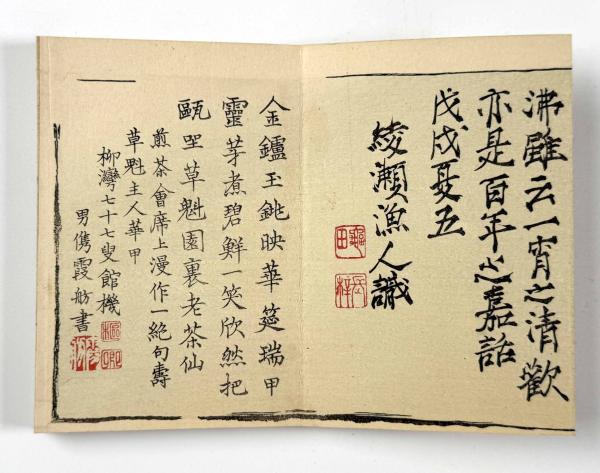 沸雖云一宵之清歡
亦是百年之嘉話
戊戌夏五
綾瀬漁人識
金鑪玉銚映華筵瑞甲
靈芽煮碧鮮一笑欣然把
甌坐草魁園裏老茶仙
煎茶會席上漫作一絶句壽
草魁主人華甲
柳灣七十七叟館機
男儁霞舫書